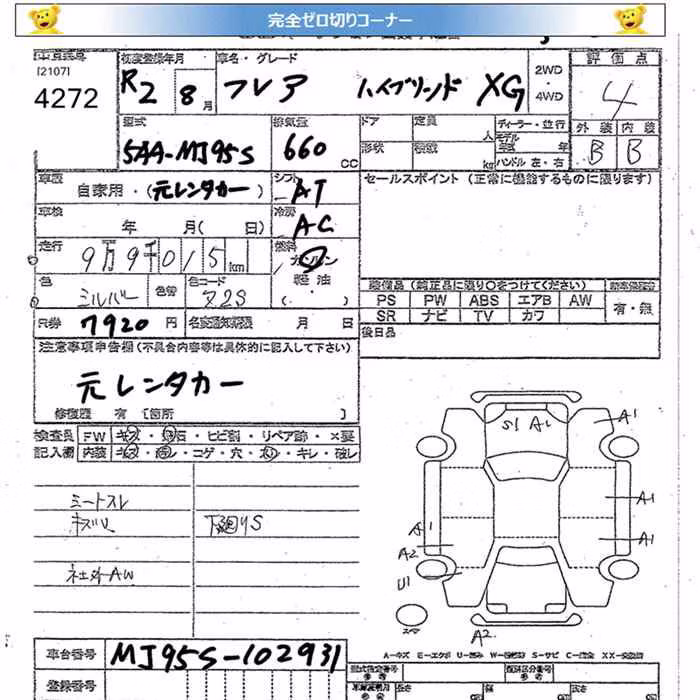 完全ゼロ切りコーナー
[2107]
4272
初度登録年月
R2 8月
車名・グレード
フレア ハイブリッド XG
2WD
4WD
評価点
4
外装 内装
B B
型式
5AA-MJ95S
排気量
660 CC
ドア
形状
定員
人
積載
kg
ディーラー・並行
モデル
年式 年
ハンドル 左・右
車歴
自家用・(元レンタカー)
シフト
AT
車検
年 月( 日)
冷房
AC
走行
9万9千015km
燃料
ガソリン
軽油
( ・ )
色
シルバー
色替
色コード
Z2S
R券
7920円
名変期限
月 日
セールスポイント (正常に機能するものに限ります)
装備品 (純正品に限り○をつけてください)
PS PW ABS エアB AW
SR ナビ TV カワ
有・無
後日品
注意事項申告欄(不具合内容等は具体的に記入して下さい)
元レンタカー
修復歴 有 [箇所 ]
検査員 FW キズ・飛石・ヒビ割・リペア跡・×要
記入欄 内装 キズ・コゲ・穴・キレ・破レ
シートスレ
キズU
下廻りS
社外AW
S1 A1
A1
A1
A1
A1
A2
U1
スペア
A2
A-キズ E-エクボ U-凹み S-サビ C-腐食 XX-交換済
車台番号
MJ95S-102931
登録番号
型式指定番号
参考
類別区分番号
参考
長さ
幅
高さ